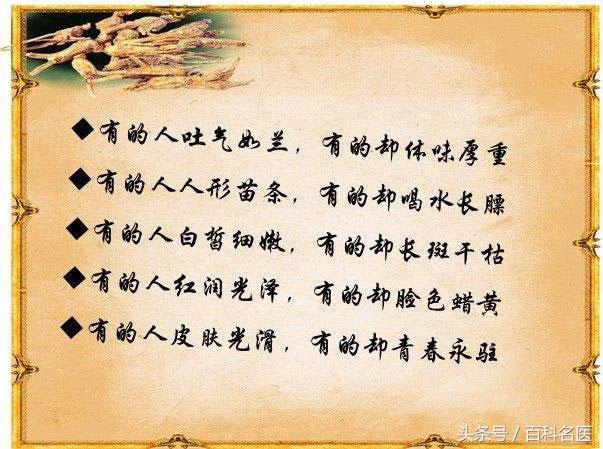 ◆有的人吐气如兰，有的却体味厚重
◆有的人人形苗条，有的却喝水长膘
◆有的人白皙细嫩，有的却长斑干枯
◆有的人红润光泽，有的却脸色蜡黄
◆有的人皮肤光滑，有的却青春永驻
头条号 / 百科名医